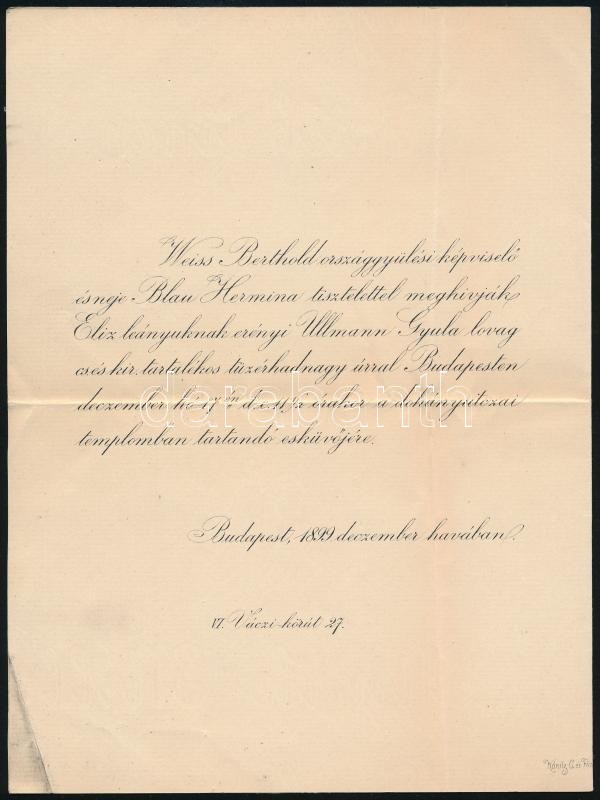 Weiss Berthold országgyülési képviselő
és neje Blau Hermina tisztelettel meghivják
Eliz leányuknak erényi Ullmann Gyula lovag
cs. és kir. tartalékos tüzérhadnagy úrral Budapesten
deczember hó 17-én d. e. 11 ½ órakor a dohányutczai
templomban tartandó esküvőjére.
darabanth
Budapest, 1899 deczember havában.
VI. Váczi-körút 27.